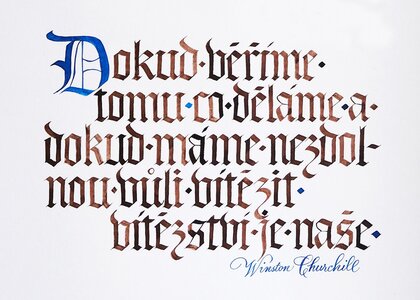 Dokud·věříme·
tomu·co·děláme·a·
dokud·máme·nezdol-
nou·vůli·vítězit·
vítězství·je·naše·
Winston Churchill